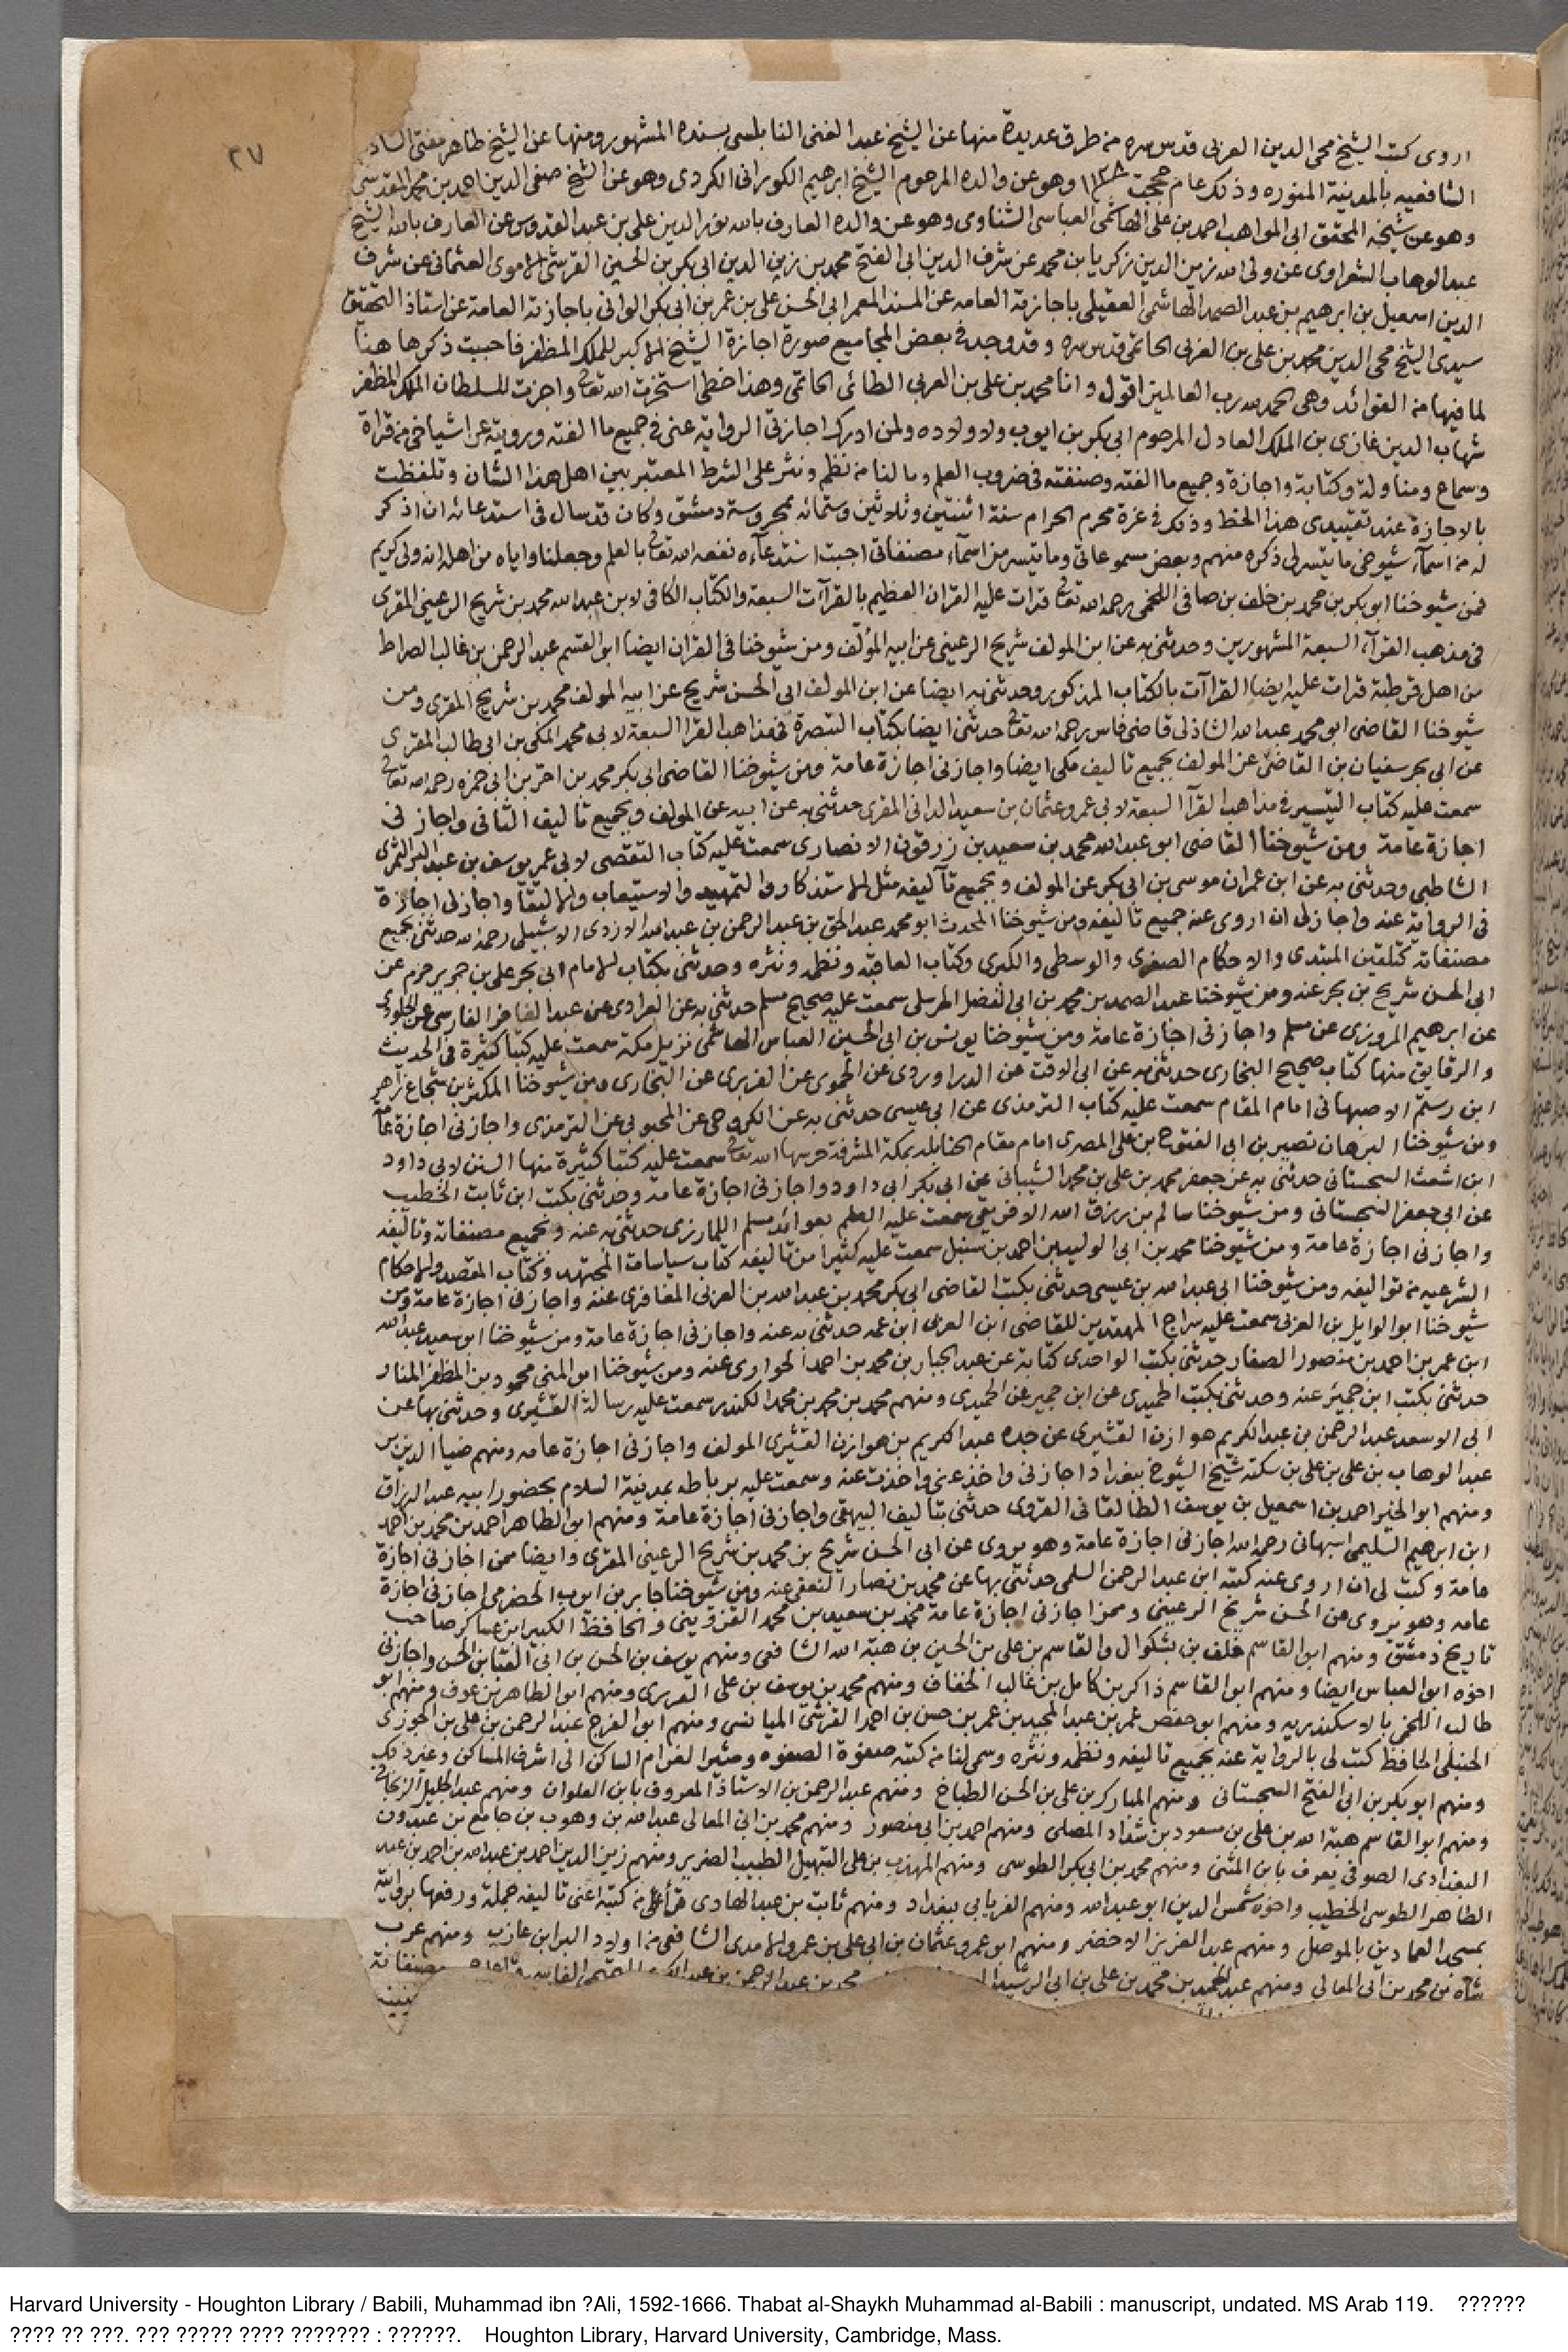 ٢٧
اروى كتب الشيخ محى الدين العربى قدس سره من طرق عديدة منها عن الشيخ عبد الغنى النابلسى بسنده المشهور ومنها عن الشيخ طاهر مفتى السادة
الشافعيه بالمدينة المنوره وذلك عام حججت ١١٣٨ وهو عن والده المرحوم الشيخ ابرهيم الكورانى الكردى وهو عن الشيخ صفى الدين احمد بن محمد المقدسى
وهو عن شيخه المحقق ابى المواهب احمد بن على الهاشمى العباسى الشناوى وهو عن والده العارف بالله نور الدين على بن عبد القدوس عن العارف بالله الشيخ
عبد الوهاب الشعراوى عن ولى الله زين الدين زكريا بن محمد عن شرف الدين ابى الفتح محمد بن زين الدين ابى بكر بن الحسين القرشى الاموى العثمانى عن شرف
الدين اسمعيل بن ابرهيم بن عبد الصمد الهاشمى العقيلى باجازته العامه عن المسند المعمر ابى الحسن على بن عمر بن ابى بكر الوانى باجازته العامة عن استاذ التحقيق
سيدى الشيخ محى الدين محمد بن على بن العربى الحاتمى قدس سره وقد وجد فى بعض المجاميع صورة اجازة الشيخ الاكبر للملك المظفر فاحببت ذكرها هنا
لما فيها من الفوائد وهى الحمد لله رب العالمين اقول وانا محمد بن على بن العربى الطائى الحاتمى وهذا خطى استخرت الله تعالى واجزت للسلطان الملك المظفر
شهاب الدين غازى بن الملك العادل المرحوم ابى بكر بن ايوب ولاولاده ولمن ادرك اجازتى الرواية عنى فى جميع ما الفته ورويته عن اشياخى من قراة
وسماع ومناولة وكتابة واجازة وجميع ما الفته وصنفته فى ضروب العلم وما لنا من نظم ونثر على الشرط المعتبر بين اهل هذا الشان وتلفظت
بالاجازة عند تقييدى هذا الخط وذلك فى غرة محرم الحرام سنة اثنتين وثلاثين وستمائه بمحروسة دمشق وكان قد سال فى استدعائه ان اذكر
له من اسمآء شيوخى ما يتسر لى ذكره منهم وبعض مسموعاتى وما تيسر من اسمآء مصنفاتى اجبت استدعآءه نفعه الله تعالى بالعلم وجعلنا واياه من اهله انه ولى كريم
فمن شيوخنا ابو بكر بن محمد بن خلف بن صافى اللخمى رحمه الله تعالى قرات عليه القران العظيم بالقرآات السبعة والكتاب الكافى لابن عبد الله محمد بن شريح الرعينى المقرى
فى مذهب القرآء السبعة المشهورين وحدثنى به عن ابن المولف شريح الرعينى عن ابيه المؤلف ومن شيوخنا فى القران ايضا ابو القسم عبد الرحمن بن غالب الصراط
من اهل قرطبة قرات عليه ايضا القراآت بالكتاب المذكور وحدثنى به ايضا عن ابن المولف ابى الحسن شريح عن ابيه المولف محمد بن شريح المقرى ومن
شيوخنا القاضى ابو محمد عبد الله الشاذلى قاضى فاس رحمه الله تعالى حدثنى ايضا بكتاب التبصرة فى مذاهب القرا السبعة لابى محمد المكى بن ابى طالب المقرى
عن ابى بحر سفيان بن القاضى عن المولف بجميع تاليف مكى ايضا واجازنى اجازة عامة ومن شيوخنا القاضى ابى بكر محمد بن احمد بن ابى حمزه رحمه الله تعالى
سمعت عليه كتاب التيسير فى مذاهب القرآ السبعة لابى عمرو عثمان بن سعيد الدانى المقرى حدثنى به عن ابيه عن المولف وبجميع تاليف الثانى واجازنى
اجازة عامة ومن شيوخنا القاضى ابو عبد الله محمد بن سعيد بن زرقون الانصارى سمعت عليه كتاب التقصى لابى عمر يوسف بن عبد البر النمرى
الشاطبى وحدثنى به عن ابن عمران موسى بن ابى بكر عن المولف وبجميع تآليفه مثل الاستذكار والتمهيد والاستيعاب والانتقا واجاز لى اجازة
فى الرواية عنه واجاز لى ان اروى عنه جميع تاليفه ومن شيوخنا المحدث ابو محمد عبد الحق بن عبد الرحمن بن عبد الله الازدى الاشبيلى رحمه الله حدثنى بجميع
مصنفاته كتلقين المبتدى والاحكام الصغرى والوسطى والكبرى وكتاب العاقبة ونظمه ونثره وحدثنى بكتاب الامام ابى بحر على بن حرير حزم عن
ابى الحسن شريح بن بحر عنه ومن شيوخنا عبد الصمد بن محمد بن ابى الفضل الحرسلى سمعت عليه صحيح مسلم حدثنى به عن الفراوى عن عبد الغافر الفارسى عن الجلودى
عن ابرهيم المروزى عن مسلم واجازنى اجازة عامة ومن شيوخنا يونس بن ابى الحسين العباس الهاشمى نزيل مكة سمعت عليه كتبا كثيرة فى الحديث
والرقايق منها كتاب صحيح البخارى حدثنى به عن ابى الوقت عن الدراوردى عن الحموى عن الفربرى عن البخارى ومن شيوخنا المكين بن شجاع زاهر
ابن رستم الاصبهانى امام المقام سمعت عليه كتاب الترمذى عن ابى عيسى حدثنى به عن الكروخى عن المحبوبى عن الترمذى واجازنى اجازة عامة
ومن شيوخنا البرهان نصير بن ابى الفتوح بن على المصرى امام مقام الحنابله بمكة المشرفة حرسها الله تعالى سمعت عليه كتبا كثيرة منها السنن لابى داود
ابن اشعث السجستانى حدثنى به عن جعفر محمد بن على بن محمد الشيبانى عن ابى بكر ابى داود واجازنى اجازة عامة وحدثنى بكتب ابن ثابت الخطيب
عن ابى جعفر السجستانى ومن شيوخنا سالم بن رزق الله الافريقى سمعت عليه المعلم بفوائد مسلم للمارزى حدثنى به عنه وبجميع مصنفاته وتاليفه
واجازنى اجازة عامة ومن شيوخنا محمد بن ابى الوليد بن احمد بن سنبل سمعت عليه كثيرا من تاليفه كتاب سياسات المجتهد وكتاب المقصد والاحكام
الشرعيه من تواليفه ومن شيوخنا ابى عبد الله بن عيسى حدثنى بكتب القاضى ابى بكر محمد بن عبد الله بن العربى المغافرى عنه واجازنى اجازة عامة ومن
شيوخنا ابو الوايل بن العربى سمعت عليه سراج المهتدين للقاضى ابن العربى ابن عمه حدثنى به عنه واجازنى اجازة عامة ومن شيوخنا ابو سعيد عبد الله
ابن عمر بن احمد بن منصور الصفار حدثنى بكتب الواحدى كتابة عن عبد الجبار بن محمد بن احمد الحوارى عنه ومن شيوخنا ابو المنى محمود بن المظفر المنار
حدثنى بكتب ابن حمير عنه وحدثنى بكتب الحميدى عن ابن حمير عن الحميدى ومنهم محمد بن محمد بن محمد الكندر سمعت عليه رسالة القشيرى وحدثنى بها عن
ابى الاسعد عبد الرحمن بن عبد الكريم هوازن القشيرى عن جده عبد الكريم بن هوازن القشيرى المولف واجازنى اجازة عامه ومنهم ضيا الدين
عبد الوهاب بن على بن على بن سكنة شيخ الشيوخ ببغداد اجازنى واخذ عنى واخذت عنه وسمعت عليه برباطه بمدينة السلام بحضور ابيه عبد الرزاق
ومنهم ابو الخير احمد بن اسمعيل بن يوسف الطالقانى القزوى حدثنى بتاليف البيهقى واجازنى اجازة عامة ومنهم ابو الطاهر احمد بن محمد بن احمد
ابن ابرهيم السليمى اسبهانى رحمه الله اجازنى اجازة عامة وهو يروى عن ابى الحسن شريح بن محمد بن شريح الرعينى المقرى وايضا ممن اجازنى اجازة
عامة وكتب لى ان اروى عنه كتبه ابن عبد الرحمن السلمى حدثنى بها عن محمد بن نصار النعقى عنه ومن شيوخنا جابر بن ايوب الحضرمى اجازنى اجازة
عامه وهو يروى عن الحسن شريح الرعينى وممن اجازنى اجازة عامة محمد بن سعيد بن محمد القزوينى والحافظ الكبير ابن عساكر صاحب
تاريخ دمشق ومنهم ابو القاسم خلف بن بشكوال والقاسم بن على بن الحسين بن هبة الله الشافعى ومنهم يوسف بن الحسن بن ابى النقاب بن الحسن واجازنى
اخوه ابو العباس ايضا ومنهم ابو القاسم ذاكر بن كامل بن غالب الخفاف ومنهم محمد بن يوسف بن على الغزبرى ومنهم ابو الطاهر بن عوف ومنهم ابو
طالب اللخمى بالاسكندريه ومنهم ابو حفص عمر بن عبد المجيد بن عمر بن حسن بن احمد القرشى الميانسى ومنهم ابو الفرج عبد الرحمن بن على بن الجوزى
الحنبلى الحافظ كتب لى بالرواية عنه بجميع تاليفه ونظمه ونثره وسمى لنا من كتبه صفوة الصفوه ومثير الغرام الساكن الى اشرف المساكن وغير ذلك
ومنهم ابو بكر بن ابى الفتح السجستانى ومنهم المبارك بن على بن الحسن الطباخ ومنهم عبد الرحمن بن الاستاذ المعروف بابن العلوان ومنهم عبد الجليل الزنجانى
ومنهم ابو القاسم هبة الله بن على بن مسعود بن شداد المصلى ومنهم احمد بن ابى منصور ومنهم محمد بن ابى المعالى عبد الله بن وهوب بن جامع بن عبدون
البغدادى الصوفى يعرف بابن المثنى ومنهم محمد بن ابى بكر الطوسى ومنهم المهذب بن على التبهيل الطبيب الضرير ومنهم زين الدين احمد بن عبد الله بن احمد بن عبد
الطاهر الطوسى الخطيب واخوه شمس الدين ابو عبد الله ومنهم الغربابى ببغداد ومنهم ثابت بن عبد الهادى قرأ على من كتبه اعنى تاليفه جملة ورفعها بروايته
بمسجد العمادين بالموصل ومنهم عبد العزيز الاخضر ومنهم ابو عمرو عثمان بن ابى على بن عمرو الامدى الشافعى من اولاد البرا بن عازب ومنهم عرب
شاه بن محمد بن ابى المعالى ومنهم عبد الحميد بن محمد بن على بن ابى الرشيد محمد بن عبد الرحمن بن عبد الكريم التميمى الفاسى مصنفاته
Harvard University - Houghton Library / Babili, Muhammad ibn ?Ali, 1592-1666. Thabat al-Shaykh Muhammad al-Babili : manuscript, undated. MS Arab 119. ??????
???? ?? ???. ??? ????? ???? ??????? : ??????. Houghton Library, Harvard University, Cambridge, Mass.